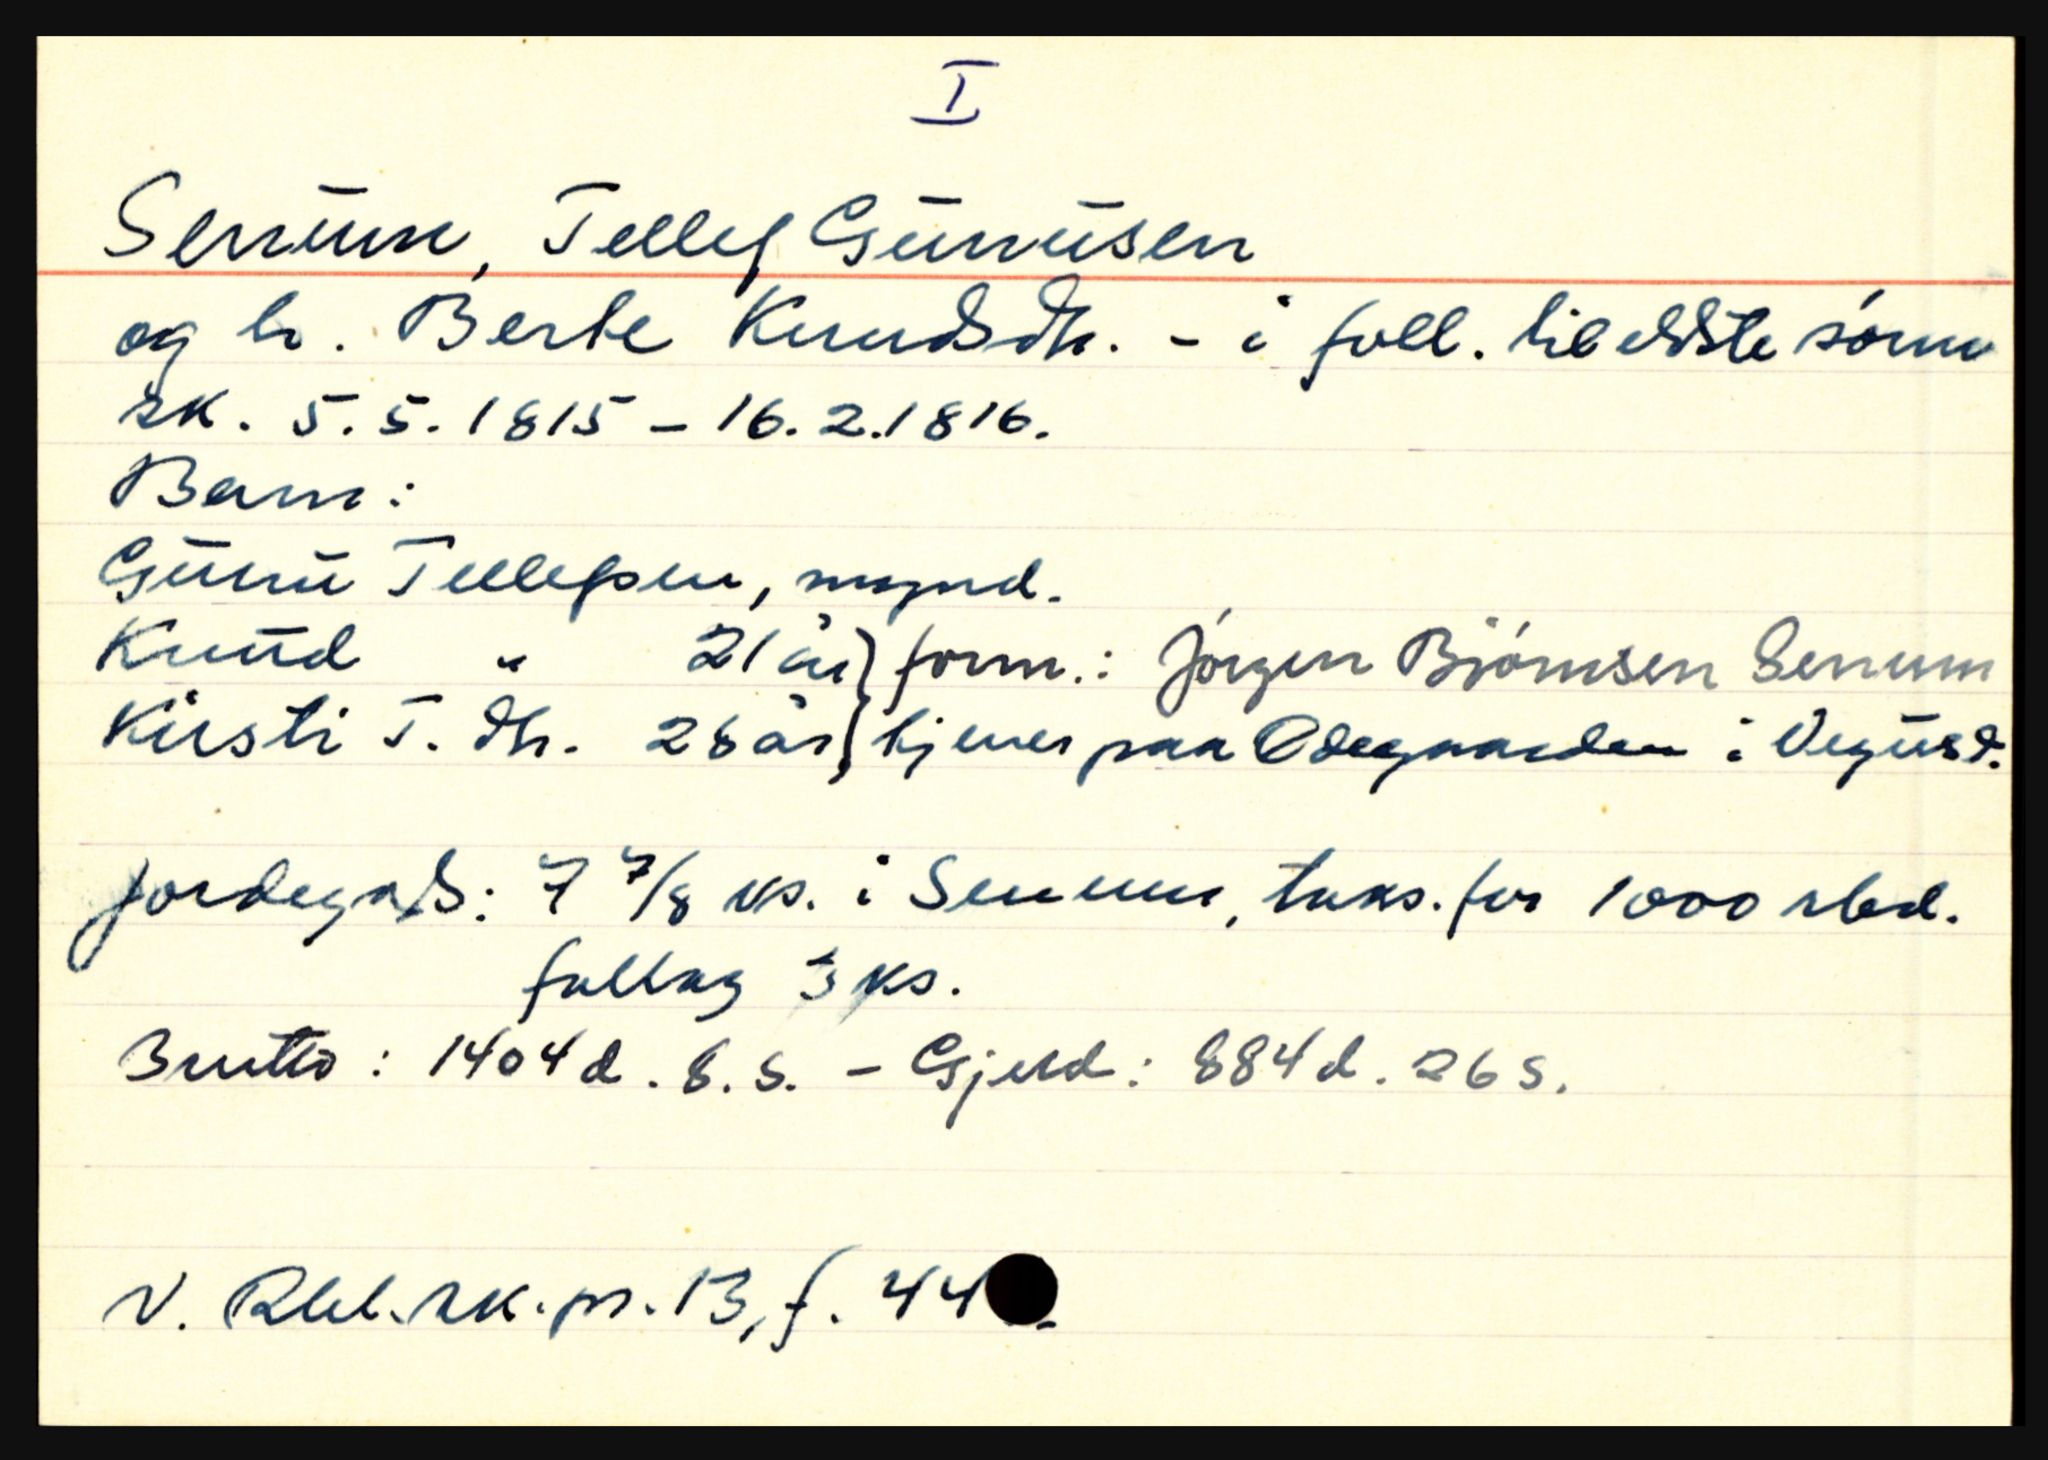 I
Senum, Tellef Gunnusen
og h. Berte Knudsdtr. - i foll. til eldste sønn
sk. 5.5.1815 - 16.2.1816.
Barn:
Gunnu Tellefsen, mynd.
Knud " 21 år } form.: Jörgen Björnsen Senum
Kirsti T. dtr. 28 år } tjener paa Ødegaarden i Vegusd.
Jordegods: 7 7/8 ks. i Senum, taks. for 1000 rbd.
fallag 3 ks.
Brutto: 1404 d. 8. s. - Gjeld: 884 d. 26 s.
V. Rbl. sk. pr. 13, f. 44